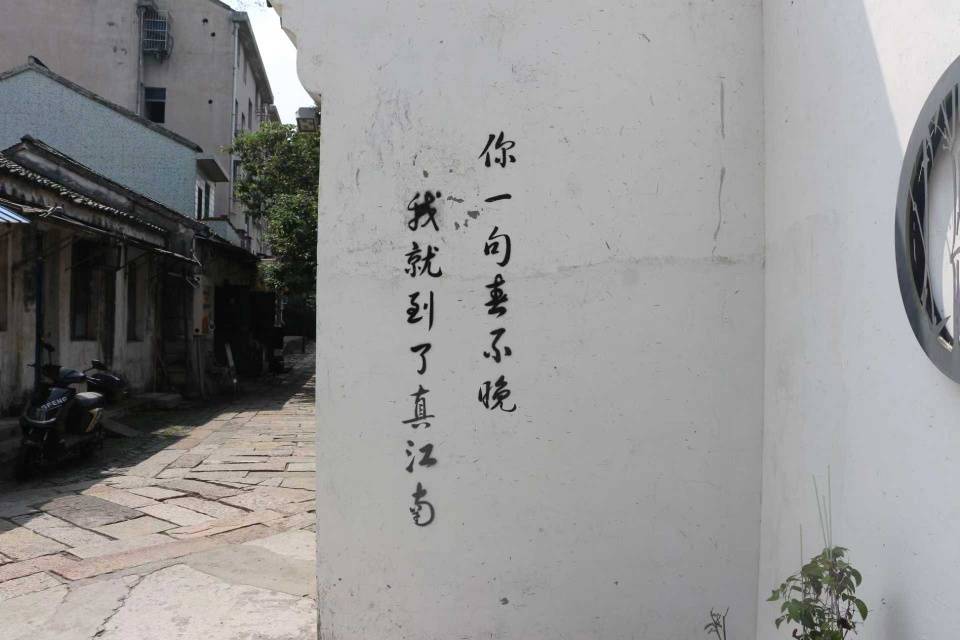 你一句春不晚
我就到了真江南